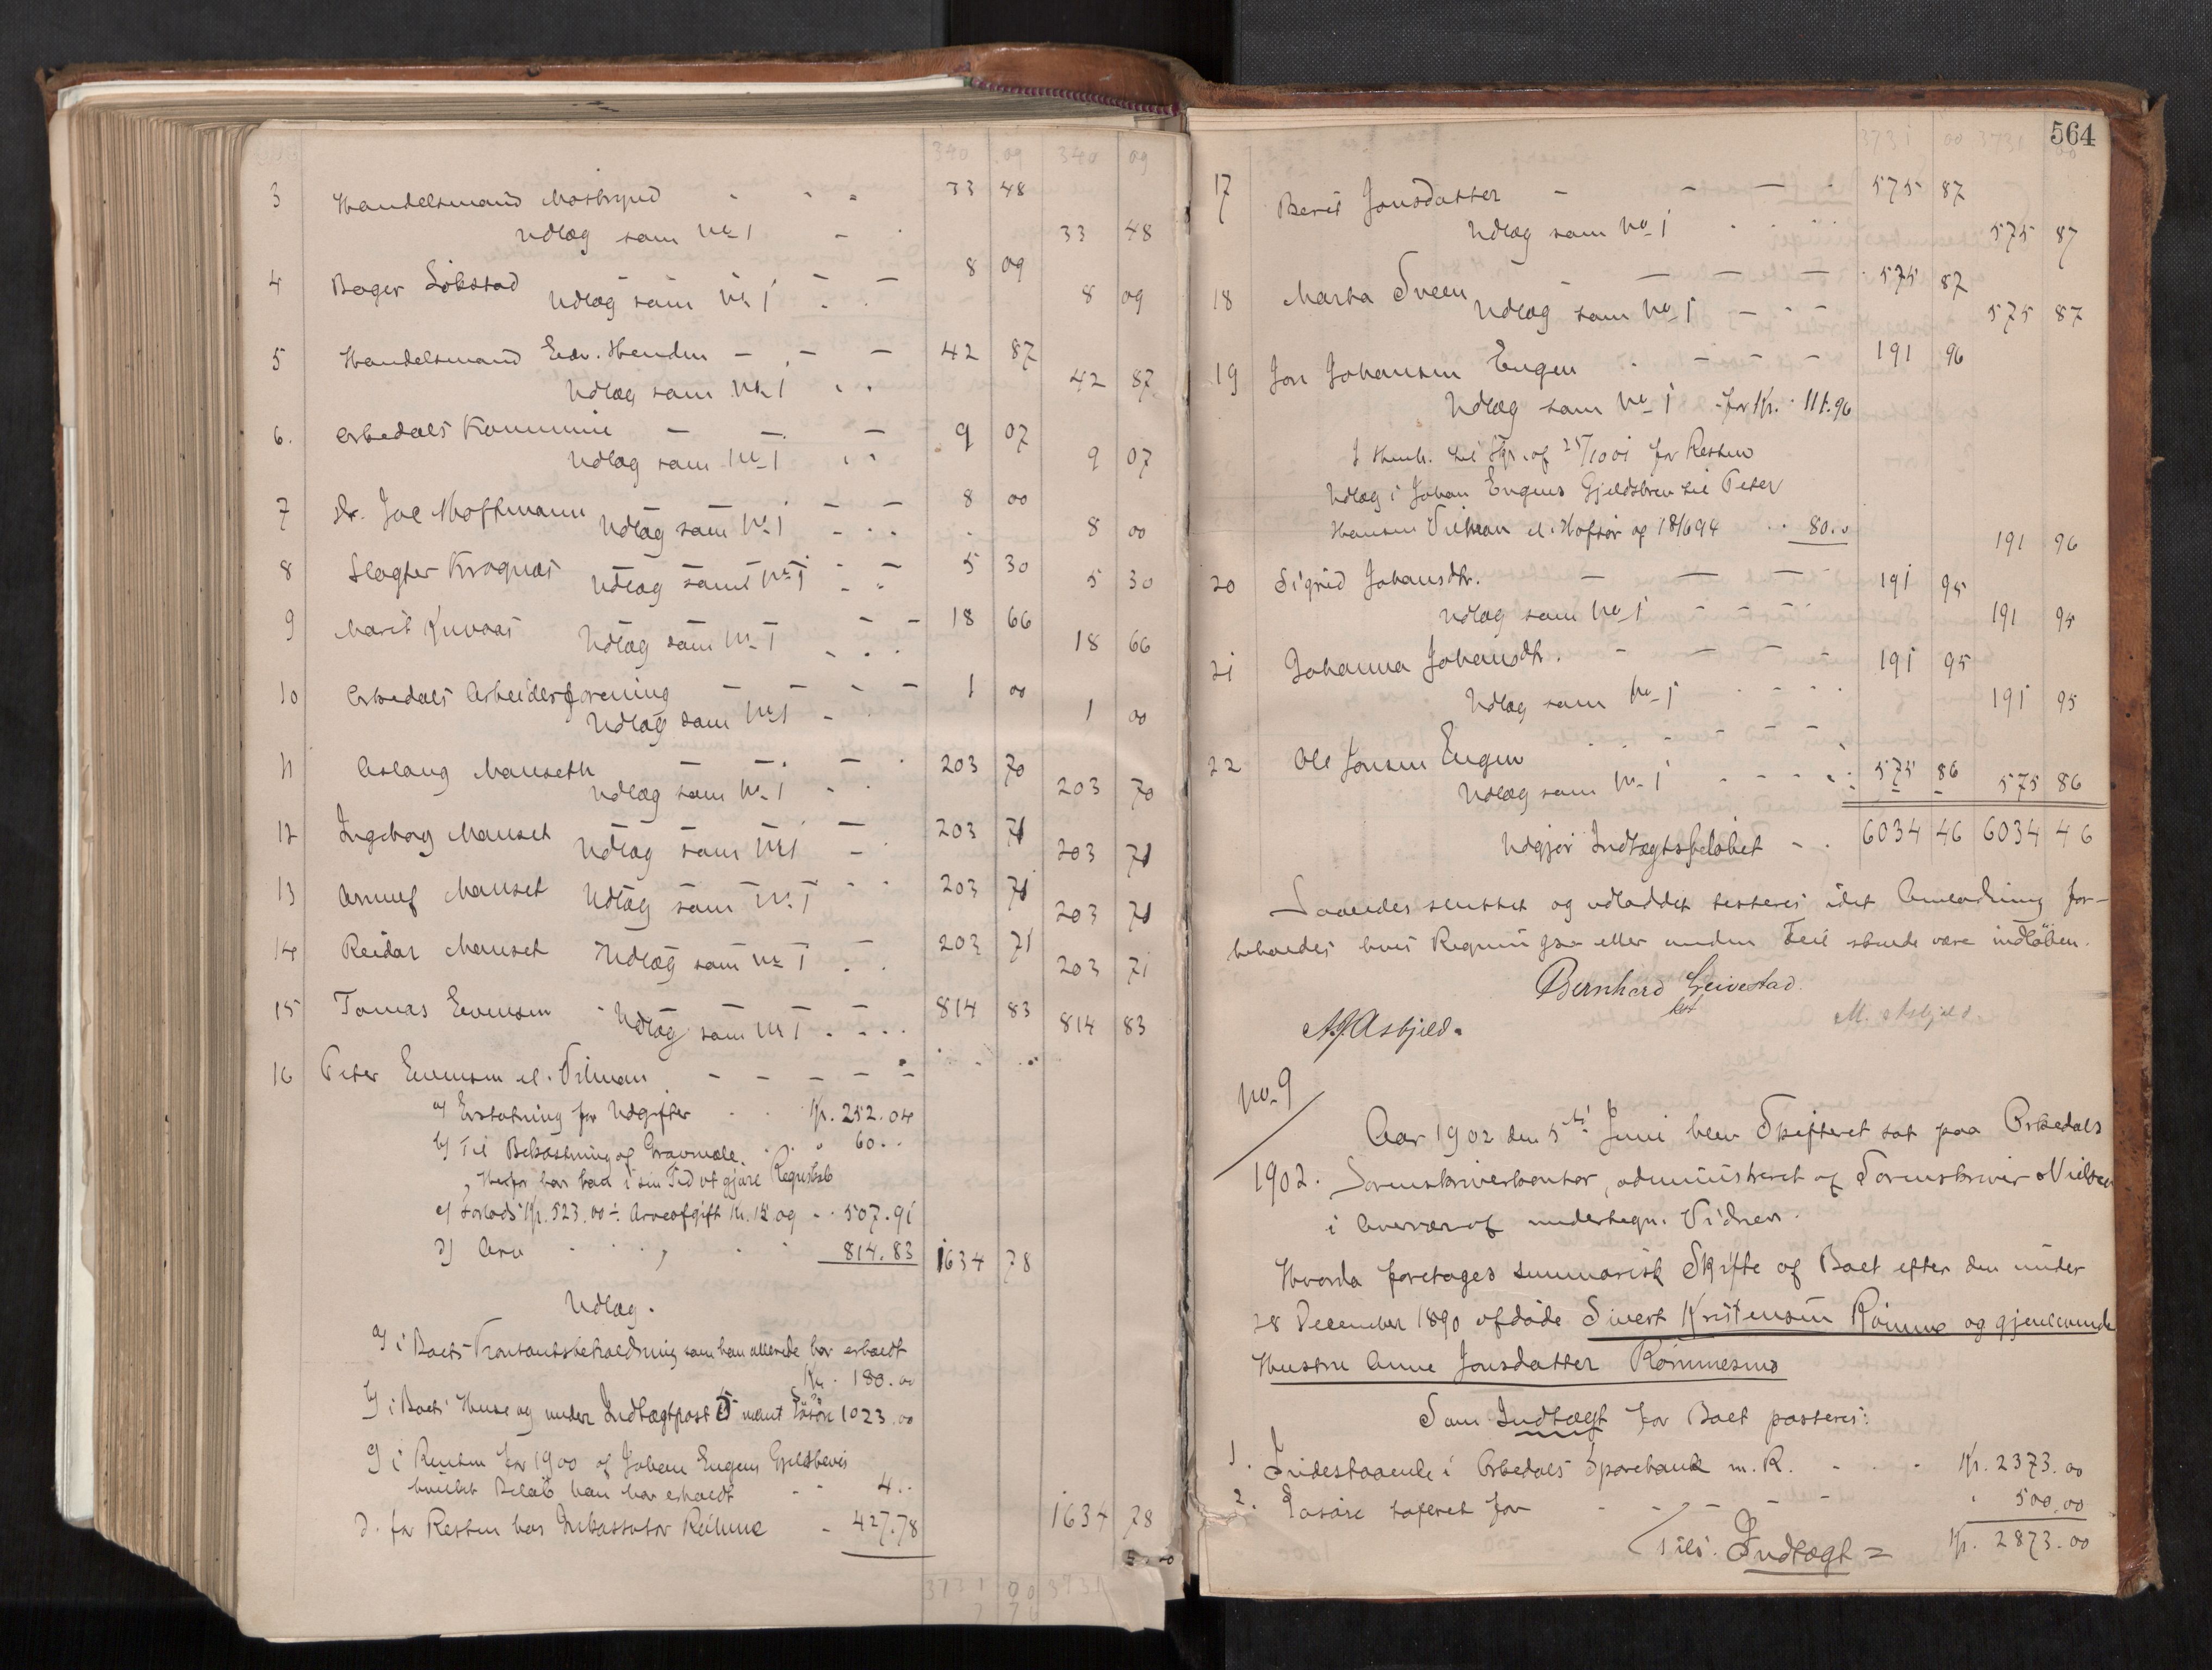 340 09 340 09
3 Handelsmand Mostryd - - - 33 48
Udlæg som No 1 - - 33 48
4 Bager Løkstad - - - 8 09
Udlæg som No 1 - - 8 09
5 Handelsmand Edv. Henden - - - 42 87
Udlæg som No 1 - - 42 87
6. Orkedals Kommune - - - 9 07
Udlæg som No 1 - - 9 07
7 Dr. Joe Hoffmann - - - 8 00
Udlæg som No 1 - - - 8 00
8 Slagter Kragnæs - - - 5 30
Udlæg som No 1 - - 5 30
9 Marit Kuvaas - - 18 66
Udlæg som No 1 - - - 18 66
10 Orkedals Arbeiderforening - - - - 1 00
Udlæg som No 1 - - 1 00
11 Aslaug Manseth - - - 203 70
Udlæg som No 1 - - 203 70
12 Ingeborg Manset - - - 203 71
Udlæg som No 1 - 203 71
13 Arnulf Manset - - 203 71
Udlæg som No 1 203 71
14 Reidar Manset - - - 203 71
Udlæg som No 1 - - 203 71
15 Tomas Evensen - - - - 814 83
Udlæg som No 1 - - - 814 83
16 Peter Evensen el. Vilman - - - - -
a) Erstatning for Udgifter - - Kr. 252.04
b) Til Bekostning af Gravmæle - - " 60 - -
, herfor har han i sin Tid at gjøre Regnskab
c) Forlods Kr. 523.00 ÷ Arveafgift Kr. 15.09 - - 507.91
d) Arv - - - - - 814.83 1634 78
Udlæg.
a) i Boets Kontantsbeholdning som han allerede har erholdt
Kr. 180.00
b) i Boets Huse og under Indtægtpost 5 nævnt Løsøre 1023.00
c) i Renten for 1900 af Johan Engens Gjeldsbevis
hvilket Beløb han har erholdt - - 4 - -
d. for Resten hos Inkassator Reihme - 427.78 1634 78
3731 00 3731
564
3731 00 3731 00
17 Berit Jonsdatter - - - - 575 87
Udlæg som No 1 - - - 575 87
18 Marta Sveen - - - - 575 87
Udlæg som No 1 - - - 575 87
19 Jon Johansen Engen - - - - 191 96
Udlæg som No 1 - for Kr. 111.96
I Henh. til Skr. af 25/10 01 for Resten
Udlæg i Johan Engens Gjeldsbrev til Peter
Hansen Vilman el. Hofsør af 18/6 94 - - 80.0 191 96
20 Sigrid Johansdtr. - - - 191 95
Udlæg som No 1 - - - - 191 95
21 Johanna Johansdtr. - - - - 191 95
Udlæg som No 1 - - - - 191 95
22 Ole Jonsen Engen - - - - 575 86
Udlæg som No 1 - - - - 575 86
Udgjør Indtægtsbeløbet - - 6034 46 6034 46
Saaledes sluttet og udloddet testeres idet Anledning for-
beholdes hvis Regnings- eller anden Feil skulde være indløben.
Bernhard Leivestad.
kst
A. J. Asbjeld. M. Asbjeld.
No 9
1902.
Aar 1902 den 5te Juni blev Skifteret sat paa Orkedals
Sorenskriverkontor, administreret af Sorenskriver Nielsen
i Overvær af undertegn. Vidner.
Hvorda foretages summarisk Skifte af Boet efter den under
28 December 1890 afdøde Sivert Kristensen Rømme og gjenlevende
Hustru Anne Jonsdatter Rømmesmo
Som Indtægt for Boet posteres:
1. Indestaaende i Orkedals Sparebank m. R. - - - Kr. 2373.00
2. Løsøre taxeret for - - - - - " 500.00
Tils. Indtægt = Kr. 2873.00